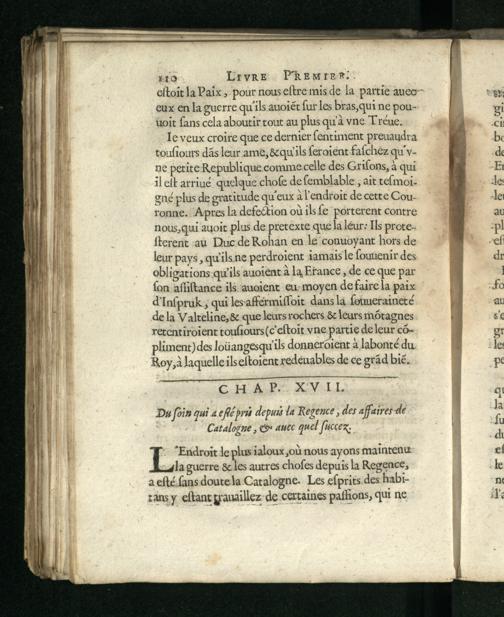 110 LIVRE PREMIER.
estoit la Paix, pour nous estre mis de la partie auec
eux en la guerre qu'ils auoiẽt sur les bras, qui ne pou-
uoit sans cela aboutir tout au plus qu'à vne Tréue.
Ie veux croire que ce dernier sentiment preuaudra
tousiours dãs leur ame, & qu'ils seroient faschez qu'v-
ne petite Republique comme celle des Grisons, à qui
il est arriué quelque chose de semblable, ait tesmoi-
gné plus de gratitude qu'eux à l'endroit de cette Cou-
ronne. Apres la defection où ils se porterent contre
nous, qui auoit plus de pretexte que la leur: Ils prote-
sterent au Duc de Rohan en le conuoyant hors de
leur pays, qu'ils ne perdroient iamais le souuenir des
obligations qu'ils auoient à la France, de ce que par
son assistance ils auoient eu moyen de faire la paix
d'Inspruk, qui les affermissoit dans la souueraineté
de la Valteline, & que leurs rochers & leurs mõtagnes
retentiroient tousiours (c'estoit vne partie de leur cõ-
pliment) des loüanges qu'ils donneroient à la bonté du
Roy, à laquelle ils estoient redeuables de ce grãd biẽ.
CHAP. XVII.
Du soin qui a esté pris depuis la Regence, des affaires de
Catalogne, & auec quel succez.
L'Endroit le plus ialoux, où nous ayons maintenu
la guerre & les autres choses depuis la Regence,
a esté sans doute la Catalogne. Les esprits des habi-
tans y estant trauaillez de certaines passions, qui ne